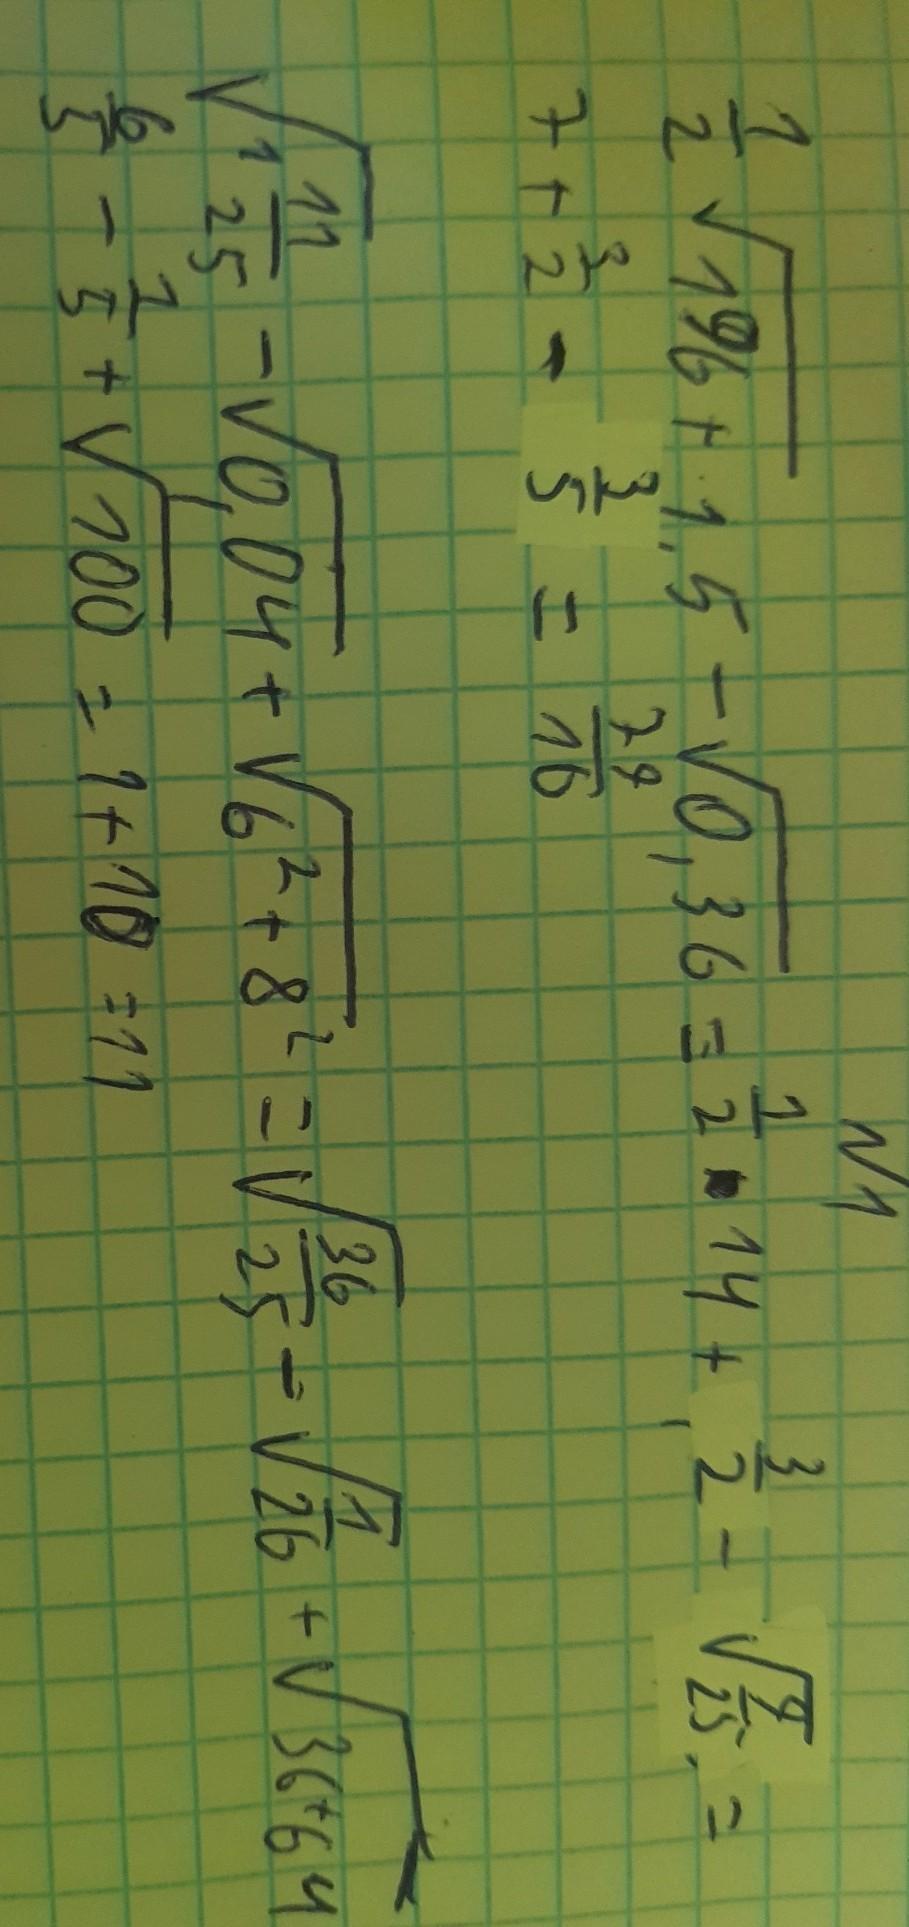 N1
1/2 √196 + 1,5 - √0,36 = 1/2 · 14 + 3/2 - √(9/25) =
7 + 3/2 - 3/5 = 79/16
√(1 11/25) - √0,04 + √(6² + 8²) = √(36/25) - √(1/26) + √(36+64)
6/5 - 1/5 + √100 = 1 + 10 = 11